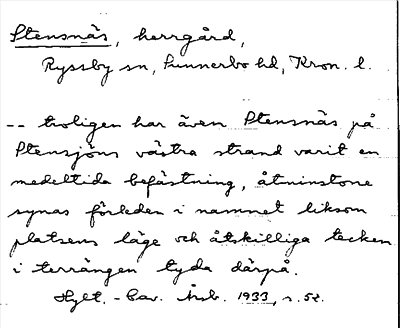 Stensnäs, herrgård,
Ryssby sn, Sunnerbo hd, Kron. l.
-- troligen har även Stensnäs på
Stensjöns västra strand varit en
medeltida befästning, åtminstone
synas förleden i namnet liksom
platsens läge och åtskilliga tecken
i terrängen tyda därpå.
Hylt.-Cav. Årsb. 1933, s. 52.